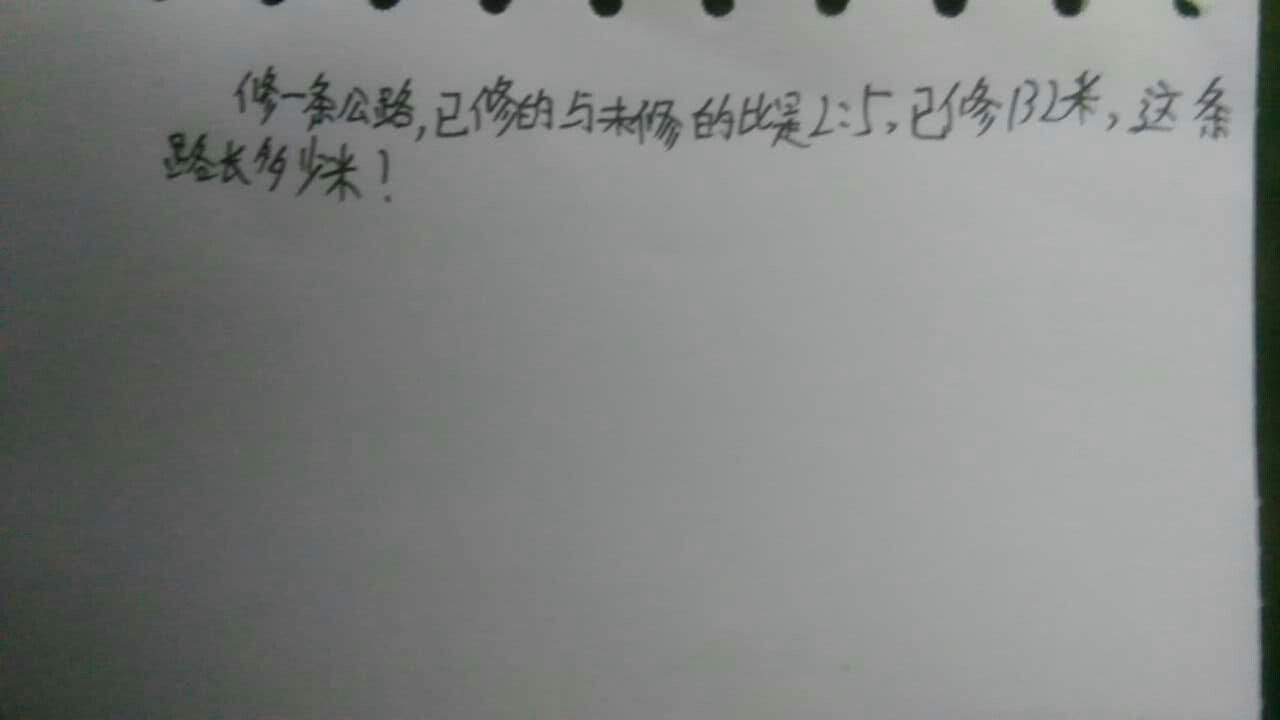 修一条公路,已修的与未修的比是2:5,已修132米,这条
路长多少米!